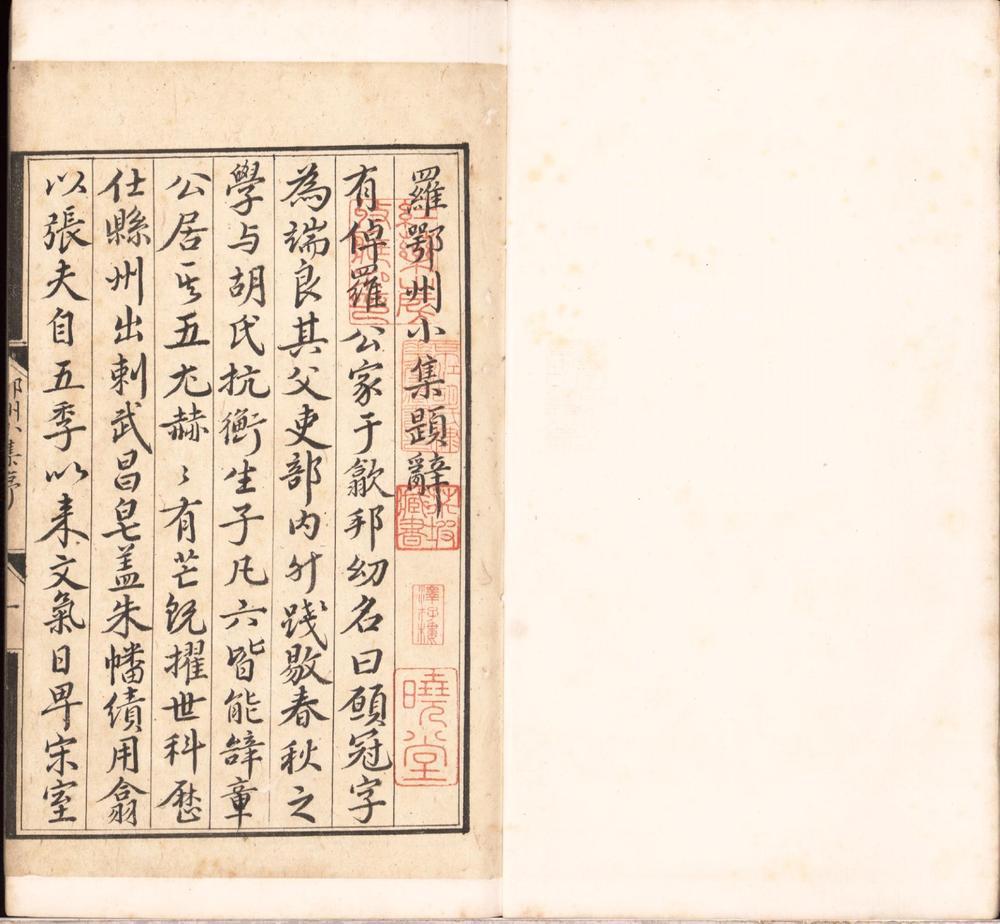 羅鄂州小集題辭
有倬羅公家于歙邦幼名曰頋冠字
為端良其父吏部內外踐敭春秋之
學与胡氏抗衡生子凡六皆能辭章
公居其五尤赫〻有芒旣擢世科歷
仕縣州出刺武昌皂盖朱幡績用翕
以張夫自五季以来文氣日卑宋室
鄂州小集序
一
藏書
澤存樓
曉堂